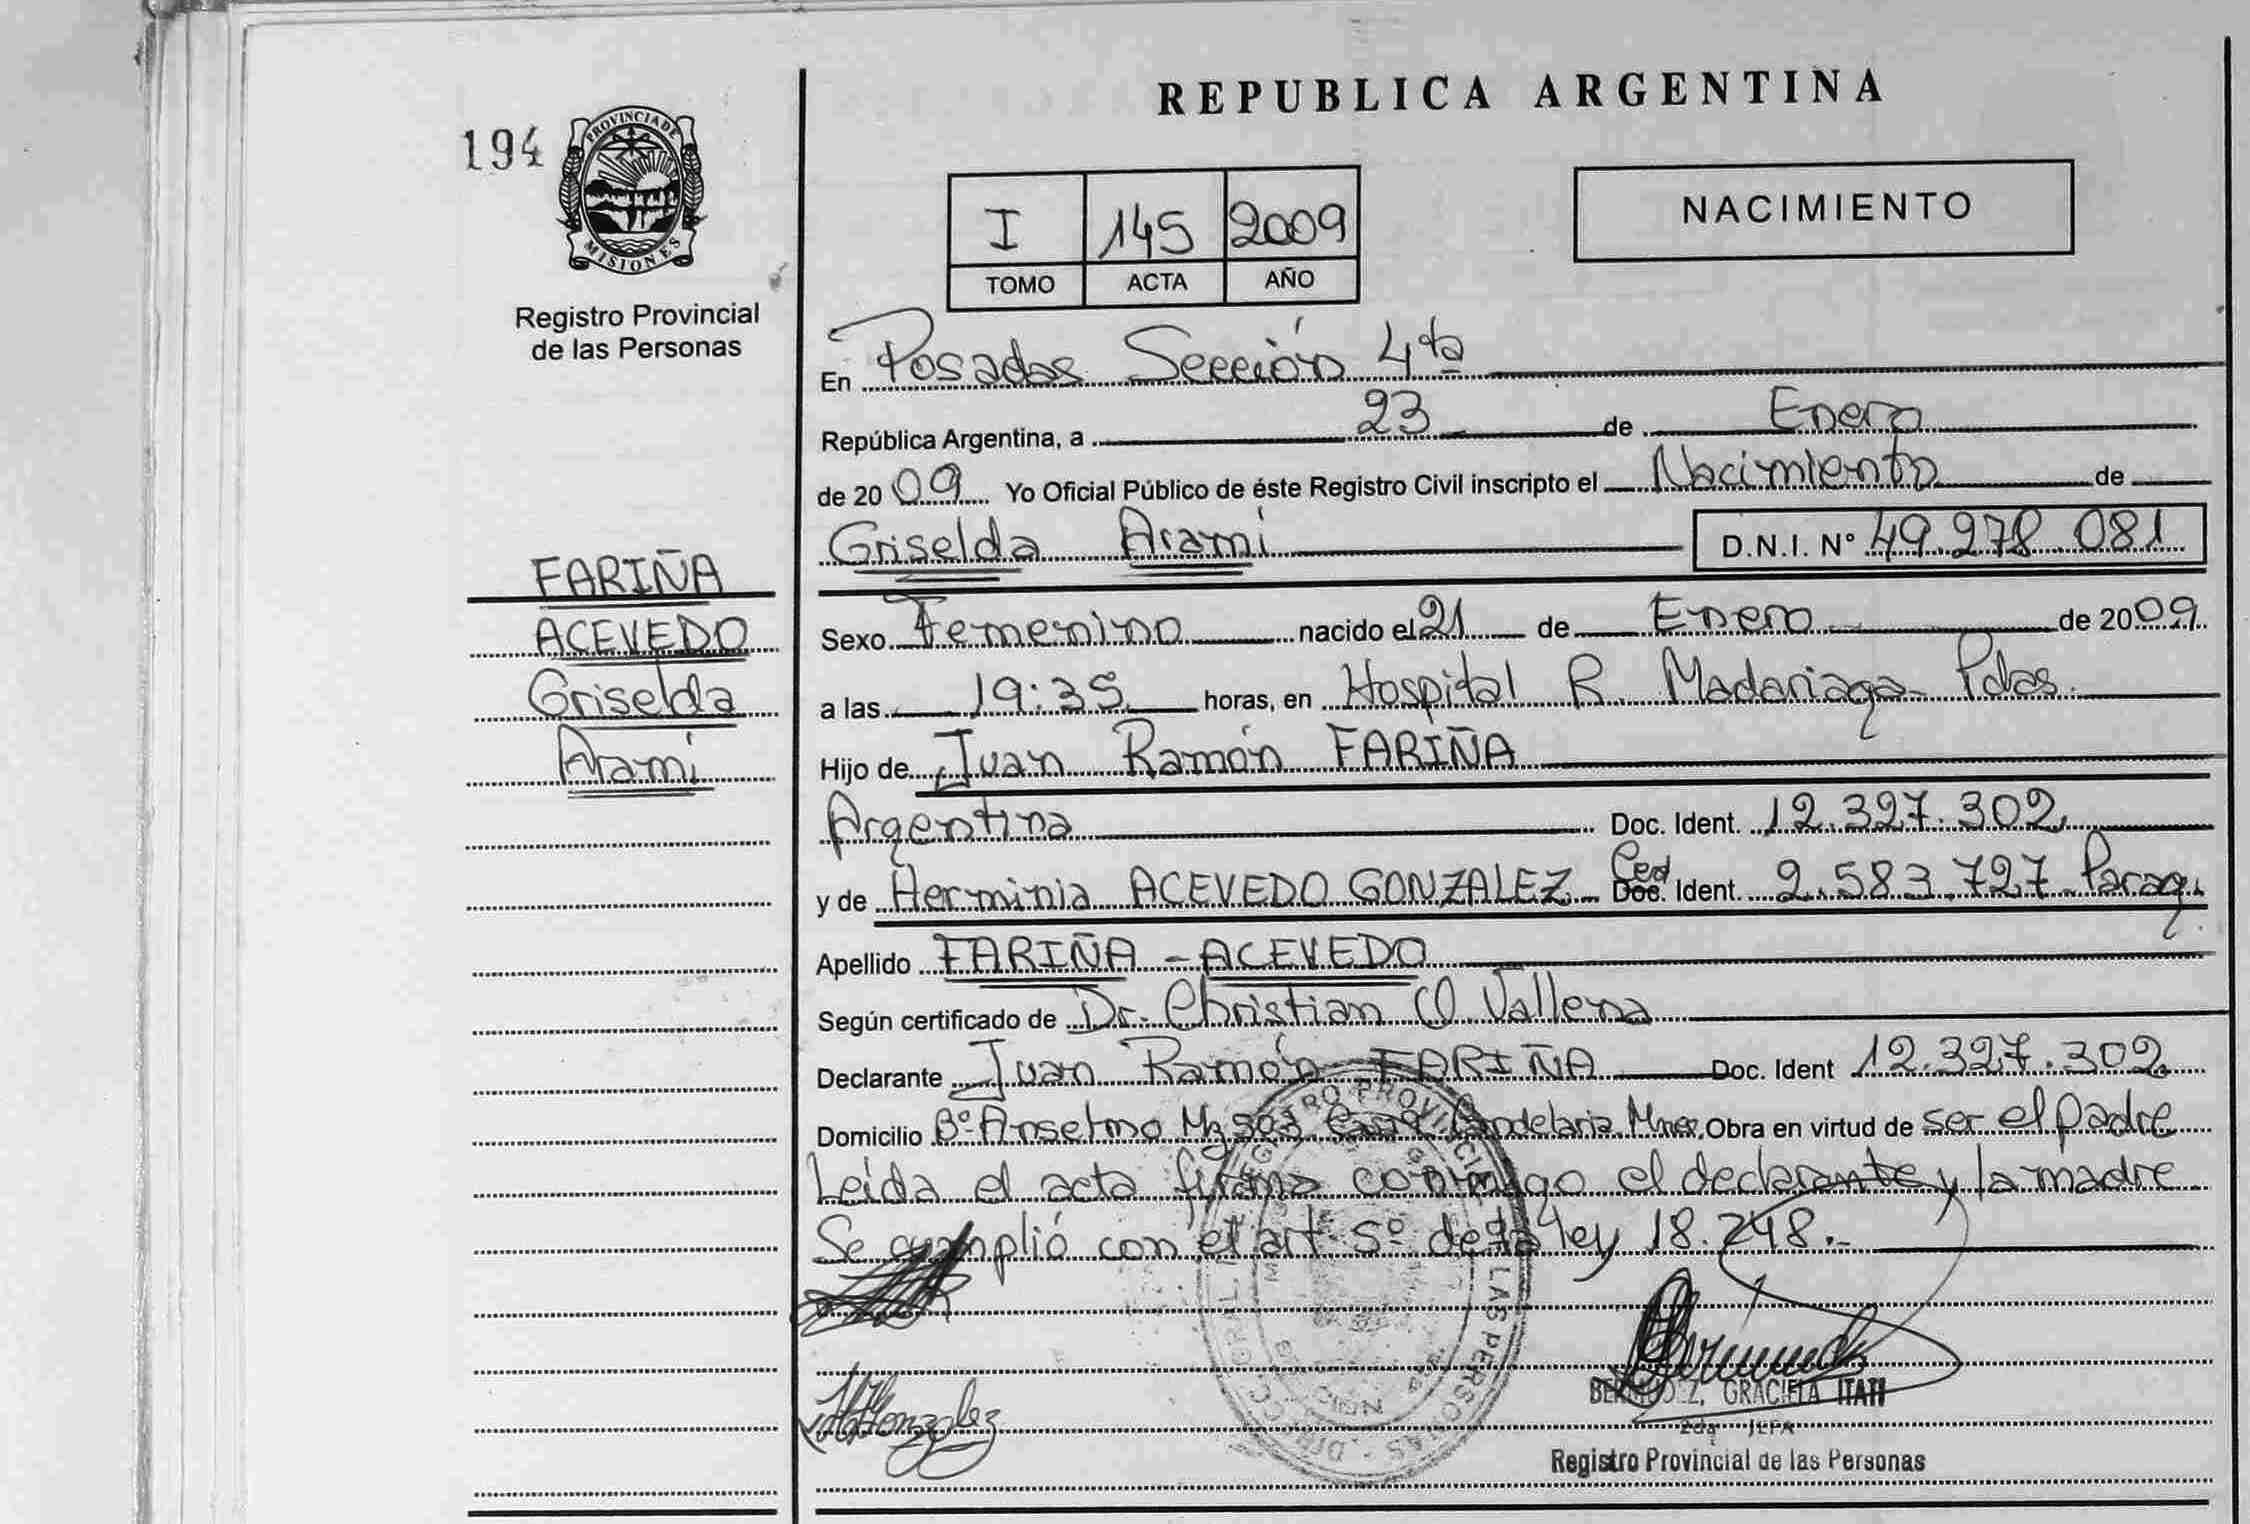 REPUBLICA ARGENTINA
194
PROVINCIA DE
MISIONES
Registro Provincial
de las Personas
I 145 2009
TOMO ACTA AÑO
NACIMIENTO
En Posadas Sección 4ta
República Argentina, a 23 de Enero
de 2009 Yo Oficial Público de éste Registro Civil inscripto el Nacimiento de
Griselda Aramí D.N.I. Nº 49.278.081
FARIÑA
ACEVEDO
Griselda
Aramí
Sexo Femenino nacido el 21 de Enero de 2009
a las 19:35 horas, en Hospital R. Madariaga Pdas.
Hijo de Juan Ramón FARIÑA
Argentina Doc. Ident. 12.327.302
y de Herminia ACEVEDO GONZALEZ Ced Doc. Ident. 2.583.727 Parag.
Apellido FARIÑA - ACEVEDO
Según certificado de Dr. Christian O Vallena
Declarante Juan Ramón FARIÑA Doc. Ident 12.327.302
Domicilio Bº Anselmo Mz 503 Candelaria Mnes. Obra en virtud de ser el padre
Leída el acta firma conmigo el declarante y la madre
Se cumplió con el art 5º de la ley 18.248.-
GRACIELA ITATI
2da JEFA
Registro Provincial de las Personas